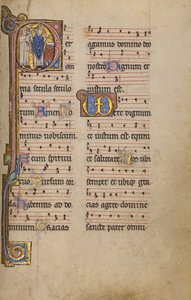 ma secula seculo
rum Amen Do
minus vobiscum
Et cum spiritu
tuo Sursum cor
da Habemus ad do
minum Gracias
agamus domino deo
nostro Dignum et
iustum est.
Vere dignum
et salutare Nos tibi
semper et ubique gra
cias agere domine
sancte pater omni